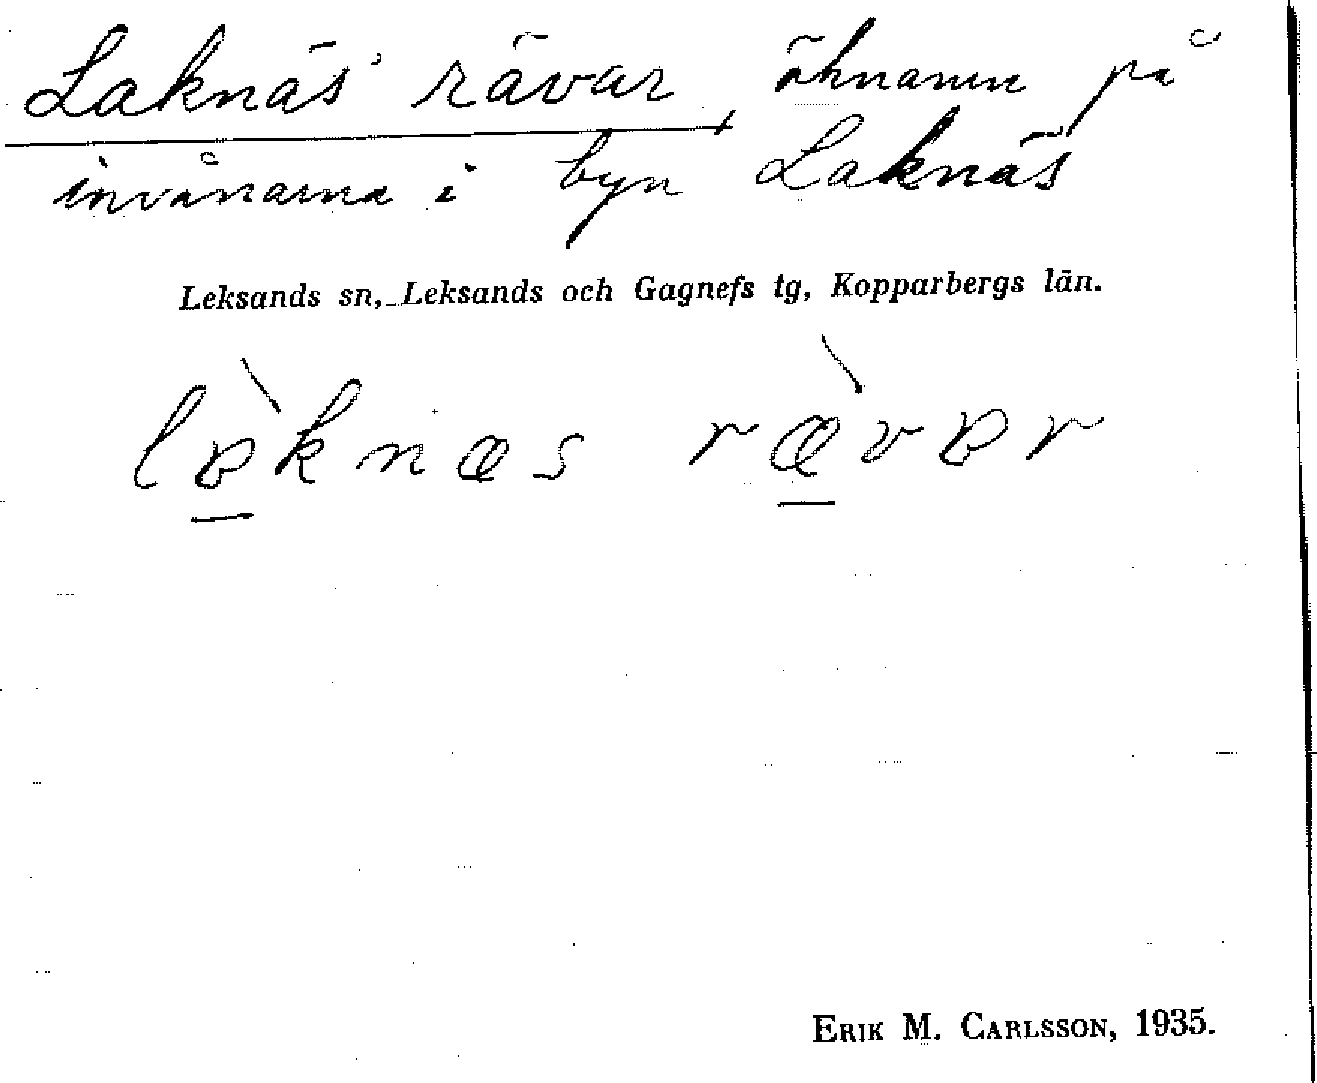 Laknäs' rävar, öknamn på
invånarna i byn Laknäs
Leksands sn, Leksands och Gagnefs tg, Kopparbergs län.
lɐ̀knæs ræ̀vɐr
ERIK M. CARLSSON, 1935.